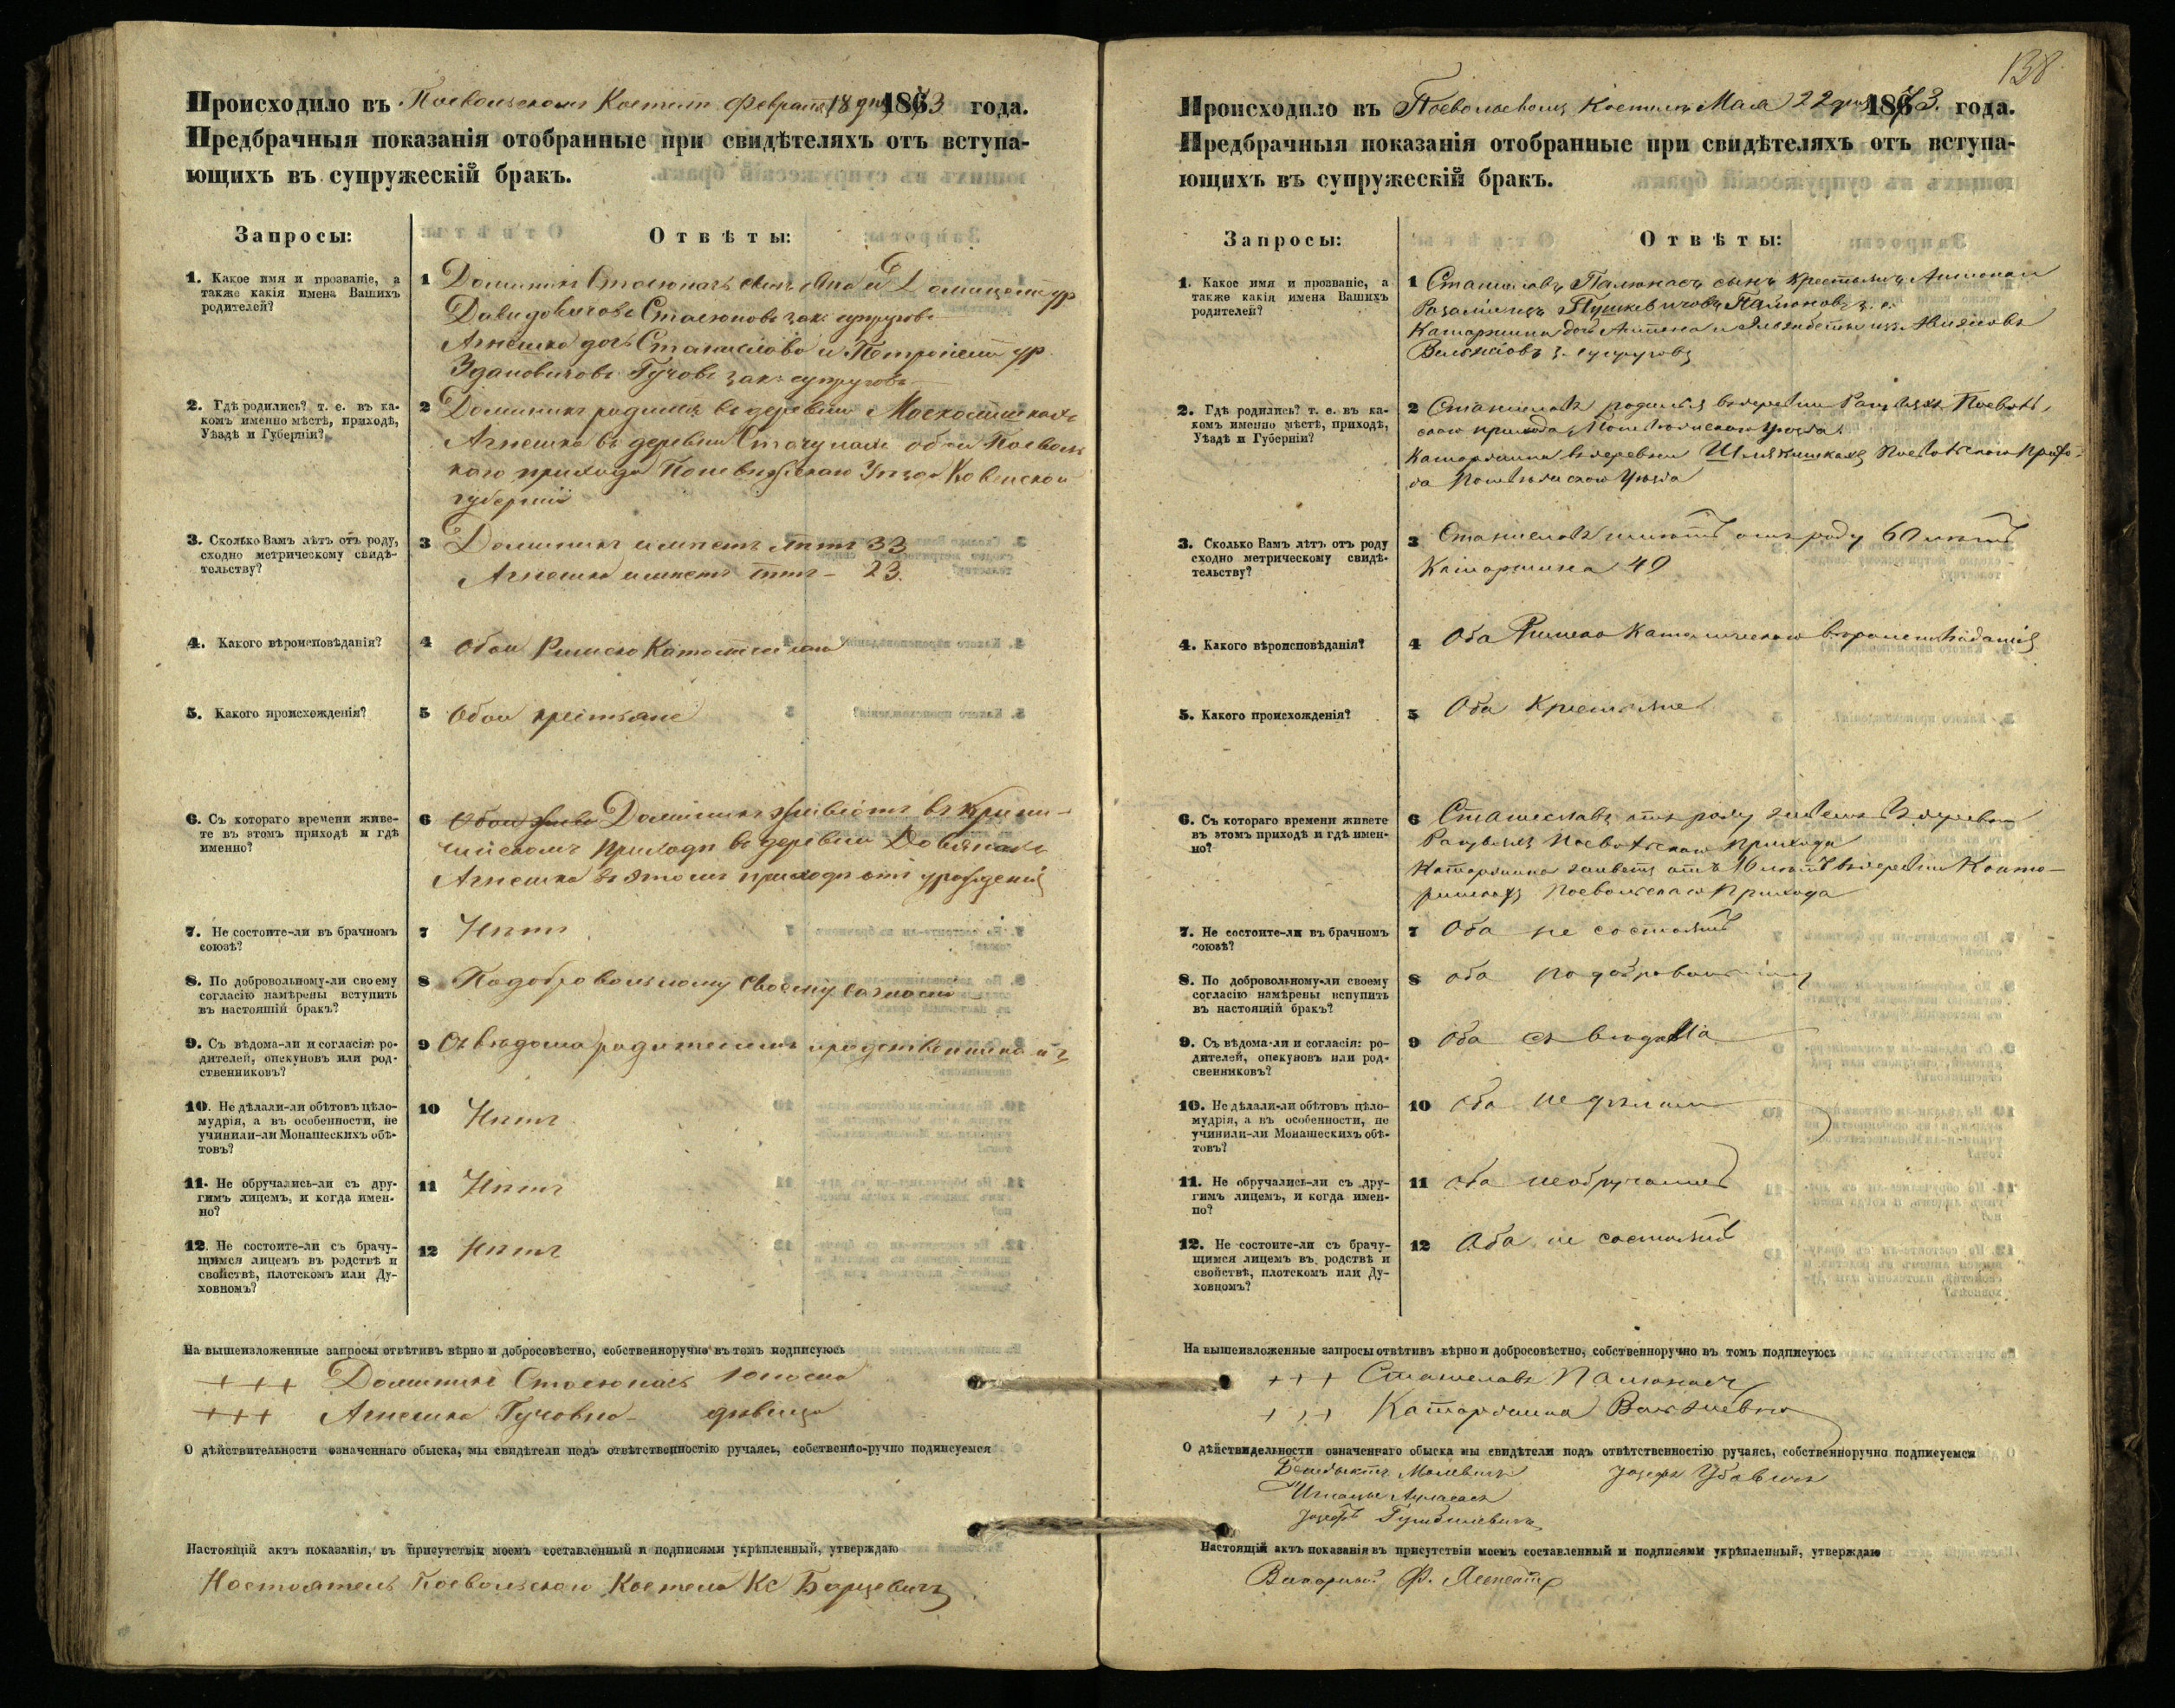 Происходило въ Поевольскомъ Костелѣ Февраля 18 дня 1873 года.
Предбрачныя показанія отобранные при свидѣтеляхъ отъ вступа-
ющихъ въ супружескій бракъ.
Запросы:
Отвѣты:
1. Какое имя и прозваніе, а
также какія имена Вашихъ
родителей?
1 Доминикъ сынъ и ур
Давидовичовъ зак: супруговъ
Агнешка дочь Станислава и Петронели ур.
Здановичовъ Гучовъ зак: супруговъ
2. Гдѣ родились? т. е. въ ка-
комъ именно мѣстѣ, приходѣ,
Уѣздѣ и Губерніи?
2 Доминикъ родился въ деревни
Агнешка въ деревни обои Поеволь
каго прихода Поневѣжскаго Уѣзда Ковенской
губерніи
3. Сколько Вамъ лѣтъ отъ роду,
сходно метрическому свидѣ-
тельству?
3 Доминикъ имѣетъ лѣтъ 33
Агнешка имѣетъ лѣтъ - 23.
4. Какого вѣроисповѣданія?
4 Обои Римско Католическаго
5. Какого происхожденія?
5 Обои крестьяне
6. Съ котораго времени живе-
те въ этомъ приходѣ и гдѣ
именно?
6 Обои живе Доминикъ живіотъ въ Крини-
чискомъ приходѣ въ деревни
Агнешка въ этомъ приходѣ отъ урожденія
7. Не состоите-ли въ брачномъ
союзѣ?
7 Нѣтъ
8. По добровольному-ли своему
согласію намѣрены вступить
въ настоящій бракъ?
8 Подобровольному своему согласію
9. Съ вѣдома-ли и согласія: ро-
дителей, опекуновъ или род-
ственниковъ?
9 Съ вѣдома родителей и родственниковъ
10. Не дѣлали-ли обѣтовъ цѣло-
мудрія, а въ особенности, не
учинили-ли Монашескихъ обѣ-
товъ?
10 Нѣтъ
11. Не обручались-ли съ дру-
гимъ лицемъ, и когда имен-
но?
11 Нѣтъ
12. Не состоите-ли съ брачу-
щимся лицемъ въ родствѣ и
свойствѣ, плотскомъ или Ду-
ховномъ?
12 Нѣтъ
На вышеизложенные запросы отвѣтивъ вѣрно и добросовѣстно, собственноручно въ томъ подписуюсь
+++ Доминикъ юноша
+++ Агнешка Гучовна - дѣвица
О дѣйствительности означеннаго обыска, мы свидѣтели подъ отвѣтственностію ручаясь, собственно-ручно подписуемся
Настоящій актъ показанія, въ присутствіи моемъ составленный и подписями укрѣпленный, утверждаю
Настоятель Поевольскаго Костела Кс
138
Происходило въ Поевольскомъ Костелѣ Мая 22 дня 1873. года.
Предбрачныя показанія отобранные при свидѣтеляхъ отъ вступа-
ющихъ въ супружескій бракъ.
Запросы:
Отвѣты:
1. Какое имя и прозваніе, а
также какія имена Вашихъ
родителей?
1 Станиславъ Палюнасъ сынъ крестьянъ
Катаржина дочь Антона и Эльжбеты изъ
супруговъ
2. Гдѣ родились? т. е. въ ка-
комъ именно мѣстѣ, приходѣ,
Уѣздѣ и Губерніи?
2 Станиславъ родился въ деревни Поеволь-
скаго прихода Поневѣжскаго Уѣзда.
Катаржина въ деревни Поевольскаго прихо-
да Поневѣжскаго Уѣзда
3. Сколько Вамъ лѣтъ отъ роду
сходно метрическому свидѣ-
тельству?
3 Станиславъ имѣетъ отъ роду 60 лѣтъ
Катаржина 40
4. Какого вѣроисповѣданія?
4 Оба Римско Католическаго вѣроисповѣданія
5. Какого происхожденія?
5 Оба Крестьяне
6. Съ котораго времени живете
въ этомъ приходѣ и гдѣ имен-
но?
6 Станиславъ отъ роду живетъ въ деревни
Поевольскаго прихода
Катаржина живетъ отъ лѣтъ въ деревни
Поевольскаго Прихода
7. Не состоите-ли въ брачномъ
союзѣ?
7 Оба не состоятъ
8. По добровольному-ли своему
согласію намѣрены вспупить
въ настоящій бракъ?
8 Оба по добровольному
9. Съ вѣдома-ли и согласія: ро-
дителей, опекуновъ или род-
свенниковъ?
9 Оба съ вѣдома
10. Не дѣлали-ли обѣтовъ цѣло-
мудрія, а въ особенности, не
учинили-ли Монашескихъ обѣ-
товъ?
10 Оба не дѣлали
11. Не обручались-ли съ дру-
гимъ лицемъ, и когда имен-
но?
11 Оба необручались
12. Не состоите-ли съ брачу-
щимся лицемъ въ родствѣ и
свойствѣ, плотскомъ или Ду-
ховномъ?
12 Оба не состоятъ
На вышеизложенные запросы отвѣтивъ вѣрно и добросовѣстно, собственноручно въ томъ подписуюсь
+++ Станиславъ Палюнасъ
+++ Катаржина
О дѣйствидельности означеннаго обыска мы свидѣтели подъ отвѣтственностію ручаясь, собственноручно подписуемся
Бенедыктъ Малевичъ
Игнацы
Юзефъ
Настоящій актъ показанія въ присутствіи моемъ составленный и подписями укрѣпленный, утверждаю
Викарный Ф.